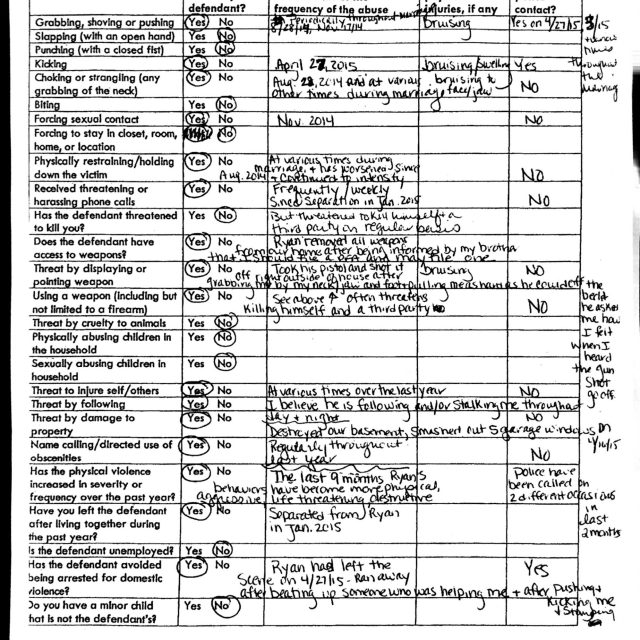 defendant? frequency of the abuse injuries, if any contact?
Grabbing, shoving or pushing Yes No Periodically throughout 8/28/14, Nov. 14 Bruising Yes on 4/27/15, 3/15
Slapping (with an open hand) Yes No
Punching (with a closed fist) Yes No
Kicking Yes No April 27, 2015 bruising/swelling Yes
Choking or strangling (any Yes No Aug. 28, 2014 and at various bruising to
grabbing of the neck) other times during marriage face/jaw NO
throughout
the
Biting Yes No
Forcing sexual contact Yes No Nov. 2014 NO
Forcing to stay in closet, room, No
home, or location
Physically restraining/holding Yes No At various times during
down the victim marriage, + has worsened since
Aug. 2014 + continued to intensify NO
Received threatening or Yes No Frequently/weekly
harassing phone calls Since separation in Jan. 2015 NO
Has the defendant threatened Yes No But threatened to kill himself + a
to kill you? third party on regular basis
Does the defendant have Yes No Ryan removed all weapons
access to weapons? from our home after being informed by my brother
that I should file a PFA and may file one.
Threat by displaying or Yes No Took his pistol and shot it bruising NO
pointing weapon off right outside of house after
grabbing me by my neck/jaw and
Using a weapon (including but Yes No See above ↑ often threatens
not limited to a firearm) Killing himself and a third party NO
the
he asked
me how
I felt
when I
heard
the gun
shot
go off
Threat by cruelty to animals Yes No
Physically abusing children in Yes No
the household
Sexually abusing children in Yes No
household
Threat to injure self/others Yes No At various times over the last year NO
Threat by following Yes No I believe he is following and/or Stalking me throughout
day + night NO
Threat by damage to Yes No
property Destroyed our basement, smashed out 5 garage windows on
4/10/15
Name calling/directed use of Yes No Regularly throughout
obscenities last year NO
Has the physical violence Yes No The last 9 months Ryan's
increased in severity or behaviors have become more physical,
frequency over the past year? aggressive, life threatening destructive
Police have
been called on
2 different occasions
in
last
2 months
Have you left the defendant Yes No Separated from Ryan
after living together during in Jan. 2015
the past year?
Is the defendant unemployed? Yes No
Has the defendant avoided Yes No Ryan had left the Yes
being arrested for domestic Scene on 4/27/15 - Ran away
violence? after beating up someone who was helping me + after pushing +
kicking me
+ stomping
Do you have a minor child Yes No
that is not the defendant's?